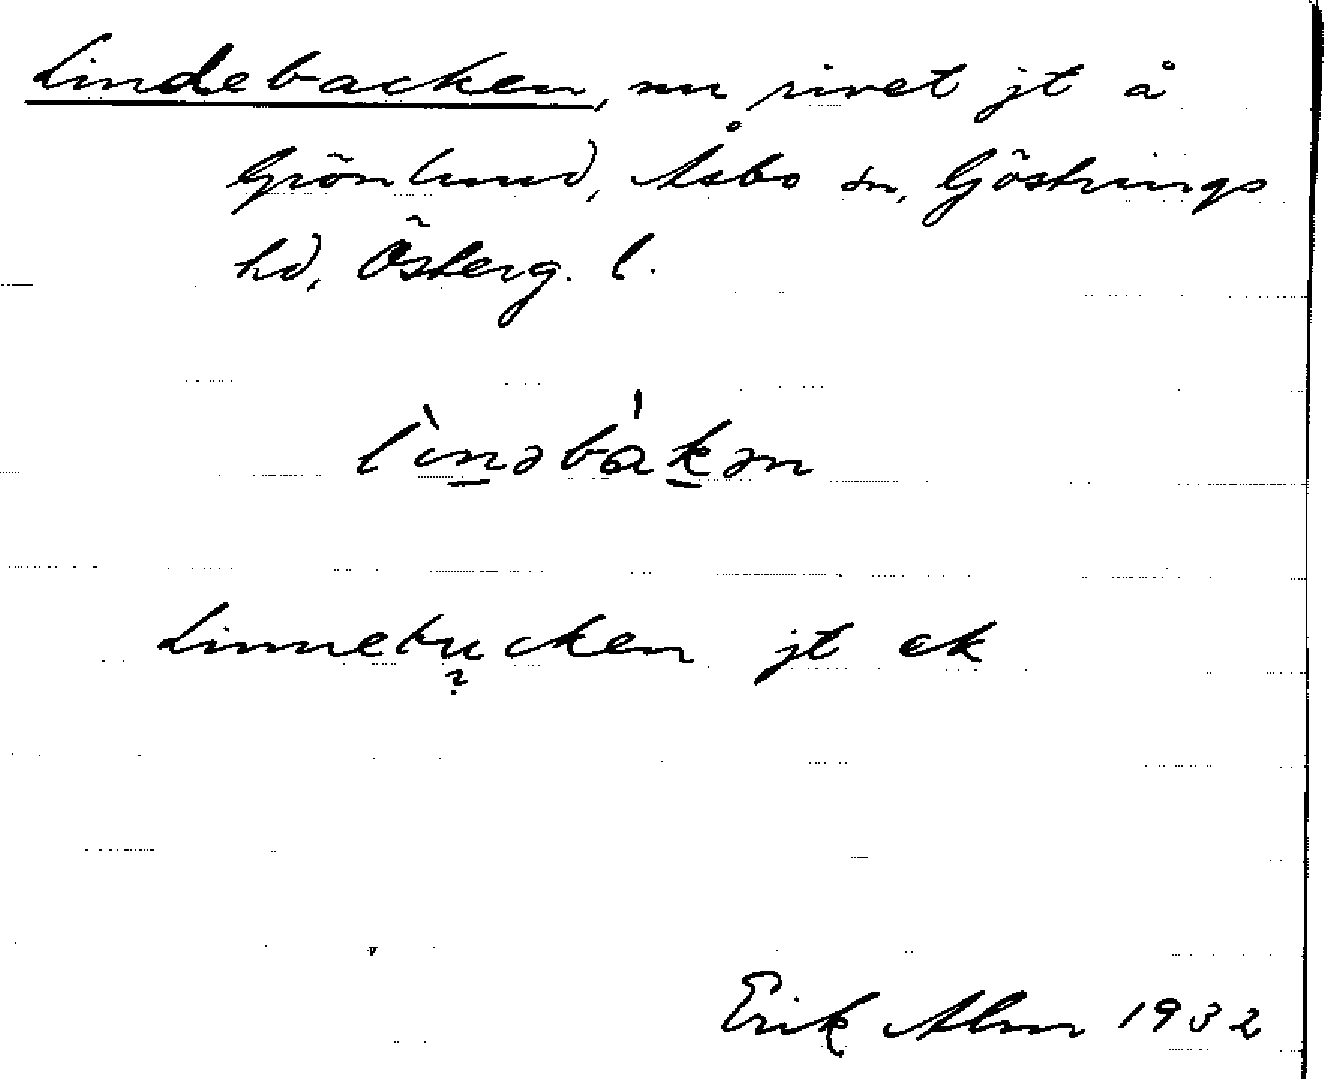 Lindebacken, nu rivet jt å
Grönlund, Åsbo sn, Göstrings
hd, Österg. l.
lìnəbákən
Linnebucken jt ek
?
Erik Alm 1932